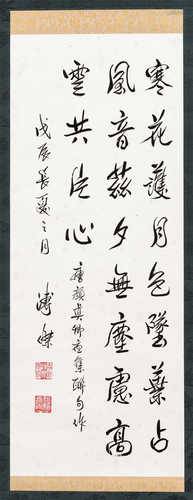 寒花護月色墜葉占
風音茲夕無塵慮高
雲共片心
唐顏真卿夜集聯句作
戊辰長夏之月
溥傑